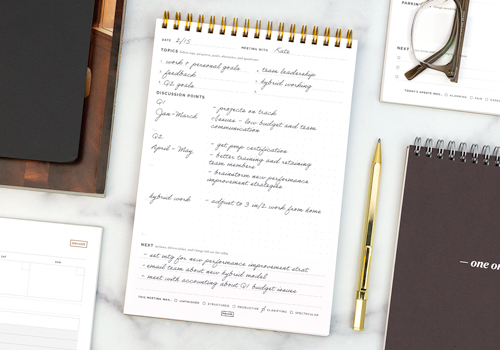 DATE 2/15 MEETING WITH Kate
TOPICS
· work + personal goals · team leadership
· feedback · hybrid working
· Q2 goals
DISCUSSION POINTS
Q1
Jan-March - projects on track
- issues - low budget and team
communication
Q2
April - May - get pmp certification
- better training and retaining
team members
- brainstorm new performance
improvement strategies
hybrid work - adjust to 3 in/2 work from home
NEXT
- set mtg for new performance improvement strat
- email team about new hybrid model
- meet with accounting about Q1 budget issues
THIS MEETING WAS... UNPLANNED STRUCTURED PRODUCTIVE CLARIFYING SPECTACULAR
PARKIN
NEXT
TODAY'S UPDATE WAS...
— one on